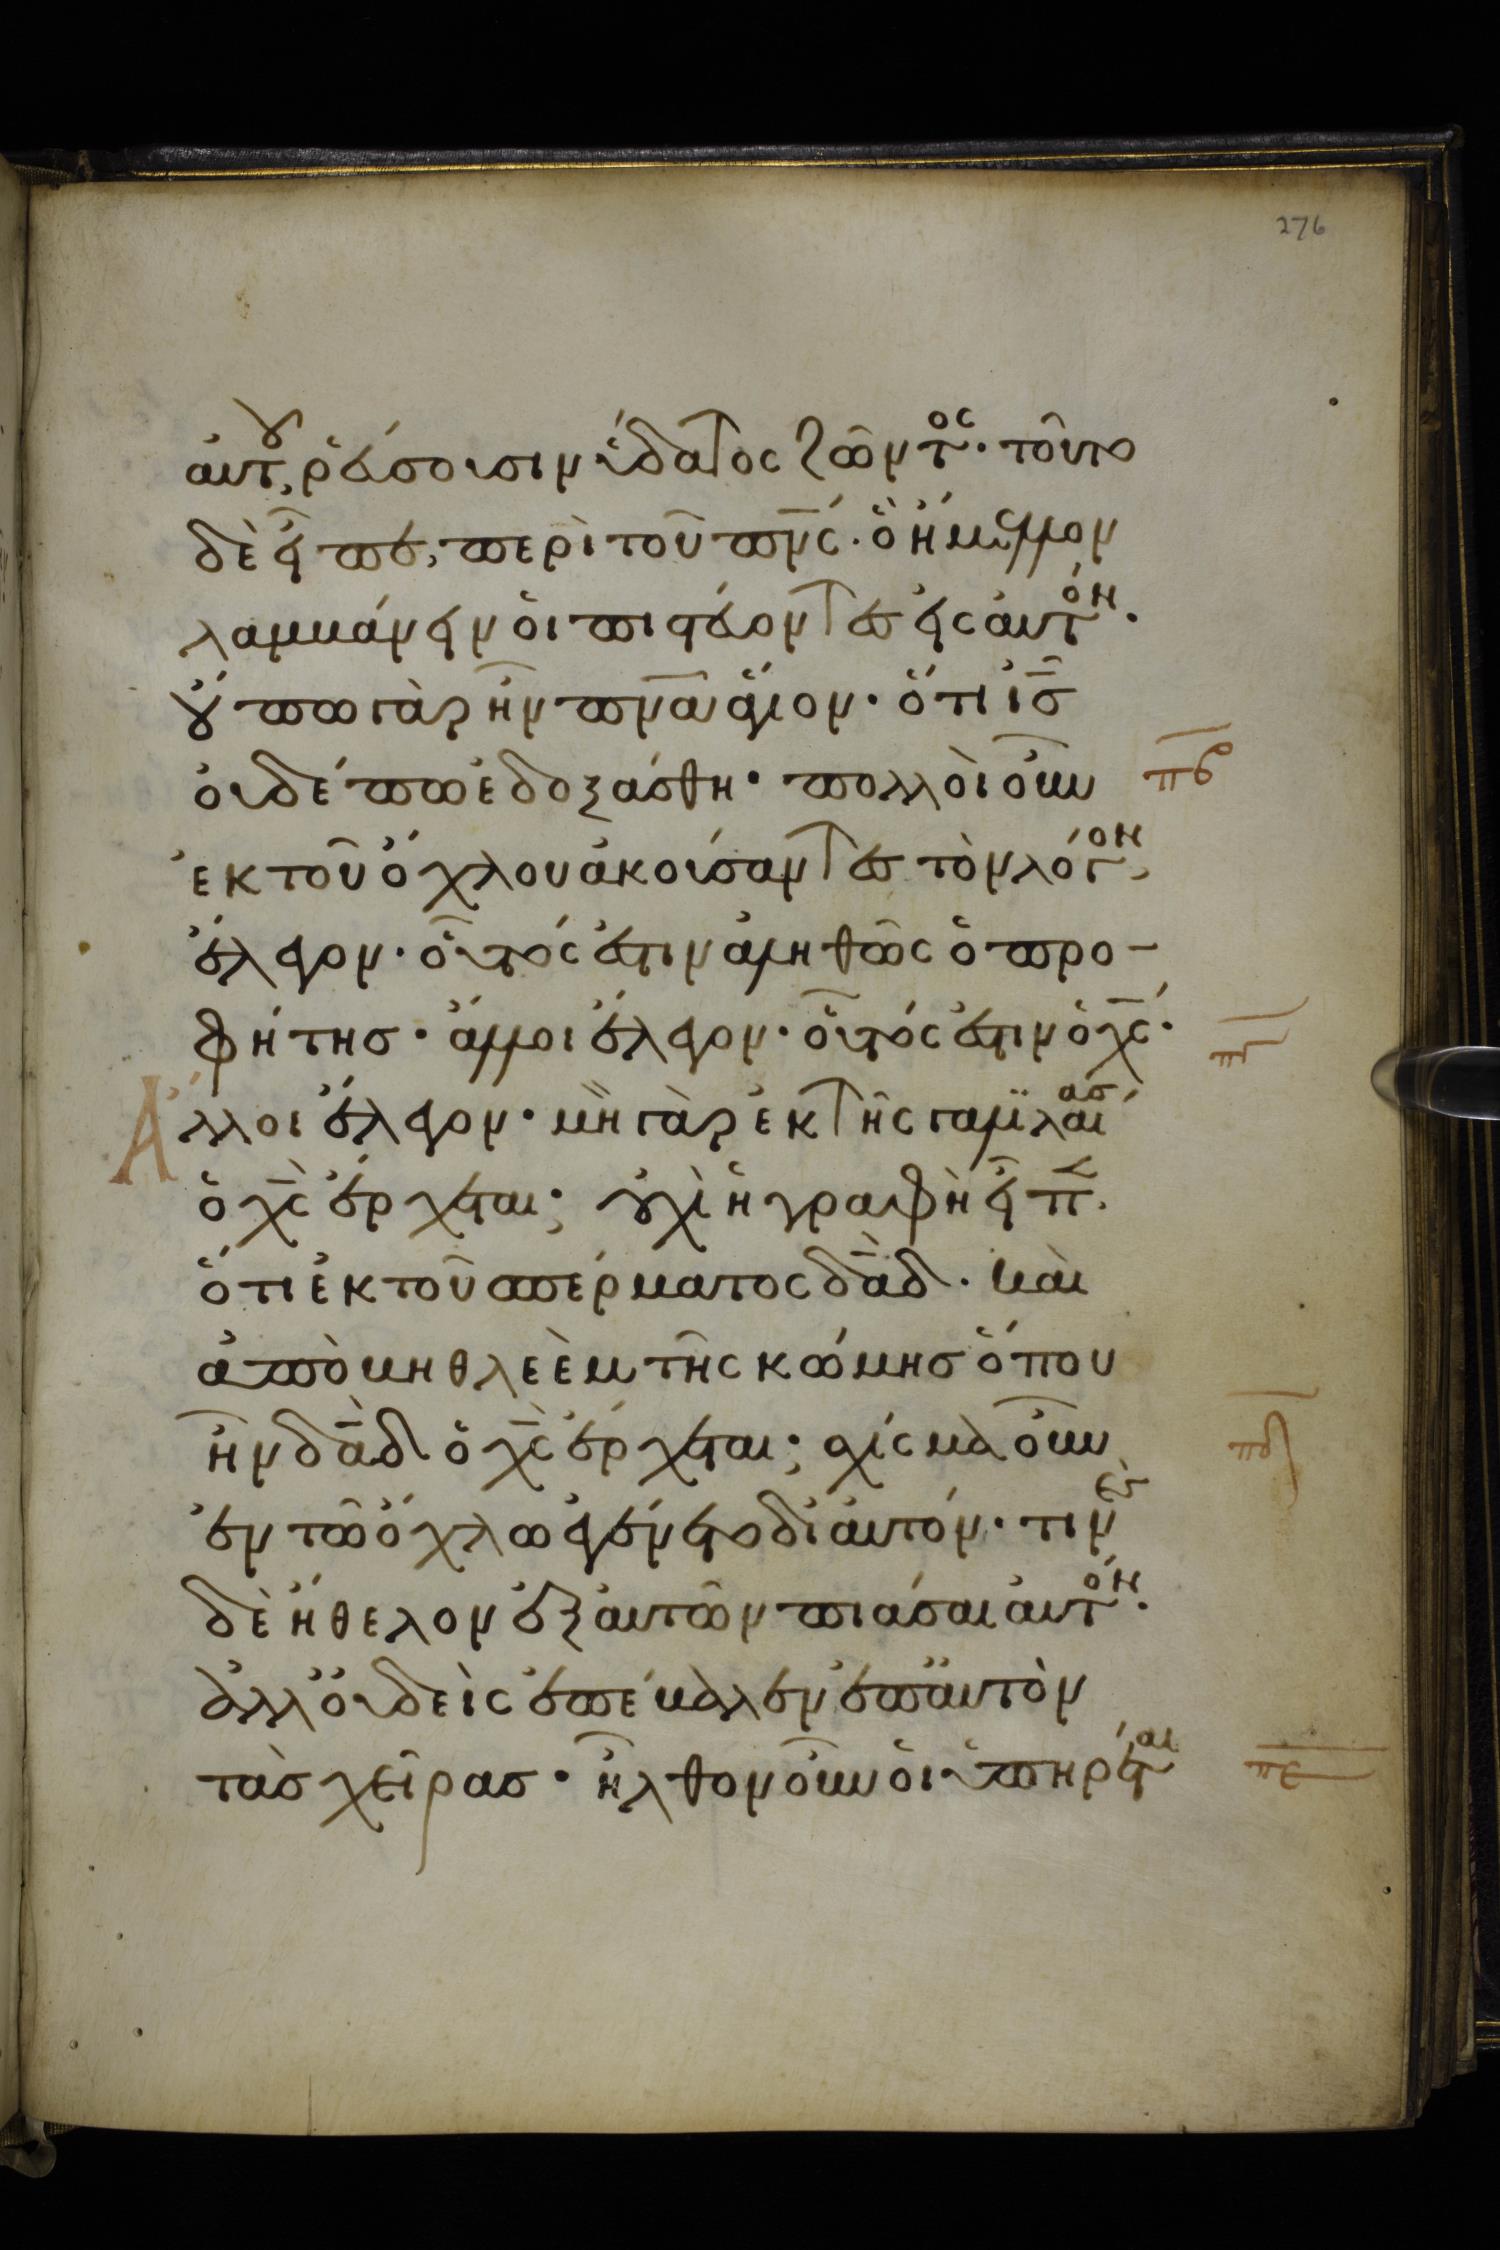 276
αὐτοῦ, ῥεύσουσιν ὕδατος ζῶντος· τοῦτο
δὲ εἶπε, περὶ τοῦ πν̅ς· ὃ ἤμελλον
λαμβάνειν οἱ πιστεύοντες εἰς αὐτόν·
οὔπω γὰρ ἦν πν̅α ἅγιον· ὅτι ι̅σ̅
οὐδέπω ἐδοξάσθη· πολλοὶ οὖν
πβ
ἐκ τοῦ ὄχλου ἀκούσαντες τὸν λόγον,
ἔλεγον· οὗτός ἐστιν ἀληθῶς ὁ προ-
φήτης· ἄλλοι ἔλεγον· οὗτός ἐστιν ὁ χ̅ς·
πγ
Ἄλλοι ἔλεγον· μὴ γὰρ ἐκ τῆς γαλιλαίας
ὁ χ̅ς ἔρχεται; οὐχὶ ἡ γραφὴ εἶπεν
ὅτι ἐκ τοῦ σπέρματος δα̅δ· καὶ
ἀπὸ βηθλεὲμ τῆς κώμης ὅπου
ἦν δα̅δ ὁ χ̅ς ἔρχεται; σχίσμα οὖν
πδ
ἐν τῶ ὄχλω ἐγένετο δι' αὐτόν· τινὲς
δὲ ἤθελον ἐξ αὐτῶν πιάσαι αὐτόν·
ἀλλ' οὐδεὶς ἐπέβαλεν ἐπ' αὐτὸν
τὰς χεῖρας· ἦλθον οὖν οἱ ὑπηρέται
πε